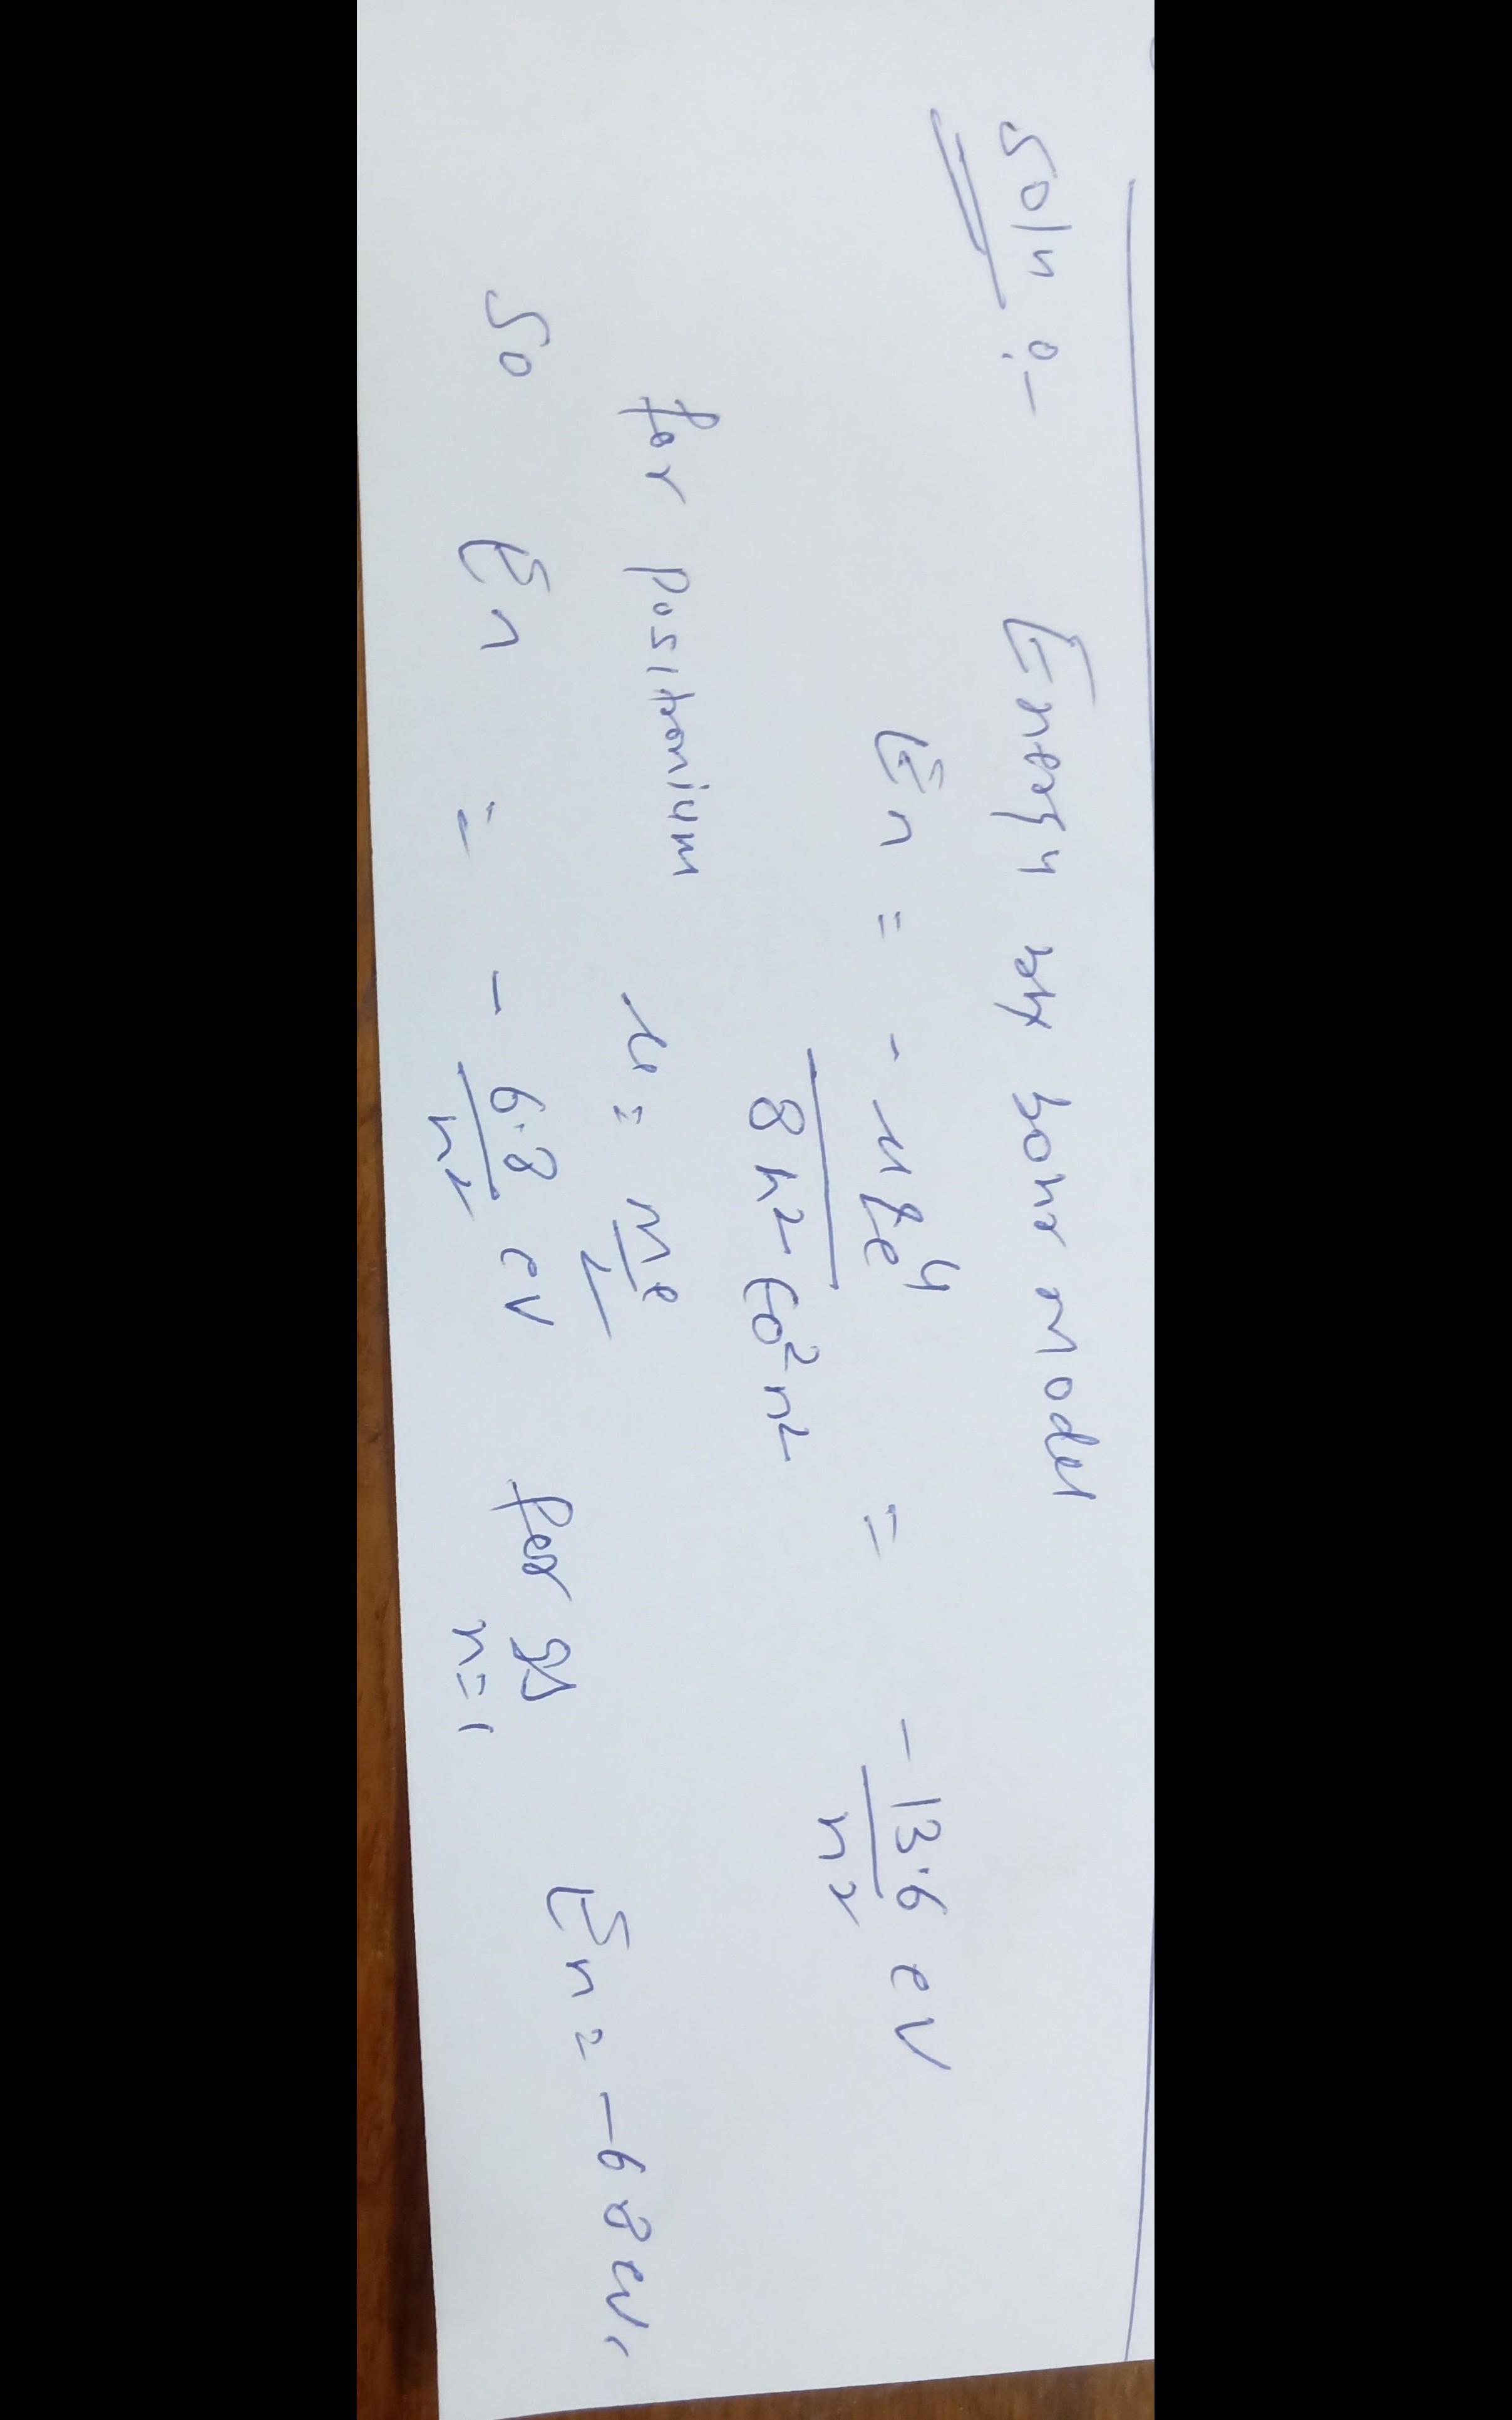 Soln :-
Energy by Bohr model
En = - μ e⁴ / 8 h² ε₀² n² = - 13.6 eV / n²
for positronium μ = me / 2
So En = - 6.8 eV / n² for gs n=1 En = -6.8 eV,